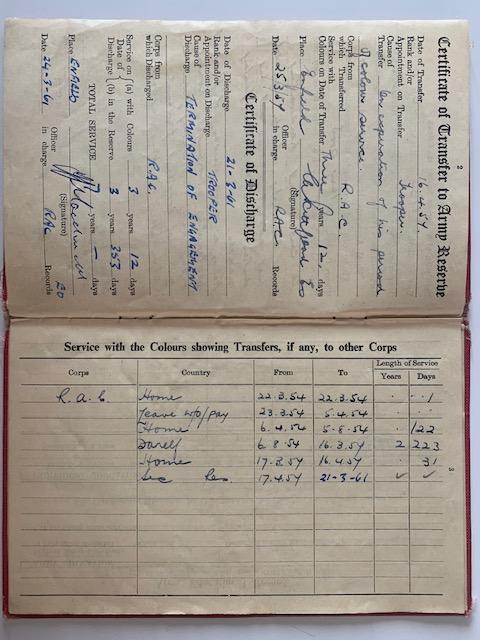 2
Certificate of Transfer to Army Reserve
Date of Transfer 16.4.57.
Rank and/or
Appointment on Transfer Trooper.
Cause of
Transfer On expiration of his period
of colour service.
Corps from
which Transferred R.A.C.
Service with
Colours on Date of Transfer Three years 12 days
Place Enfield
(Signature)
Date 25.3.57 Officer
in charge R.A.C. Records
Certificate of Discharge
Date of Discharge 21-3-61
Rank and/or
Appointment on Discharge TROOPER
Cause of
Discharge TERMINATION OF ENGAGEMENT
Corps from
which Discharged R.A.C.
Service on (a) with Colours 3 years 12 days
Date of
Discharge (b) in the Reserve 3 years 353 days
TOTAL SERVICE 7 years — days
Place ENFIELD
(Signature)
Date 24-3-61 Officer
in charge RAC Records
Service with the Colours showing Transfers, if any, to other Corps
Corps Country From To Length of Service
Years Days
R.A.C Home 22.3.54 22.3.54 1
Leave w/o/pay 23.3.54 5.4.54
Home 6.4.54 5.8.54 122
6.8.54 16.3.57 2 223
Home 17.3.57 16.4.57 31
Sec Res 17.4.57 21-3-61 ✓ ✓
3